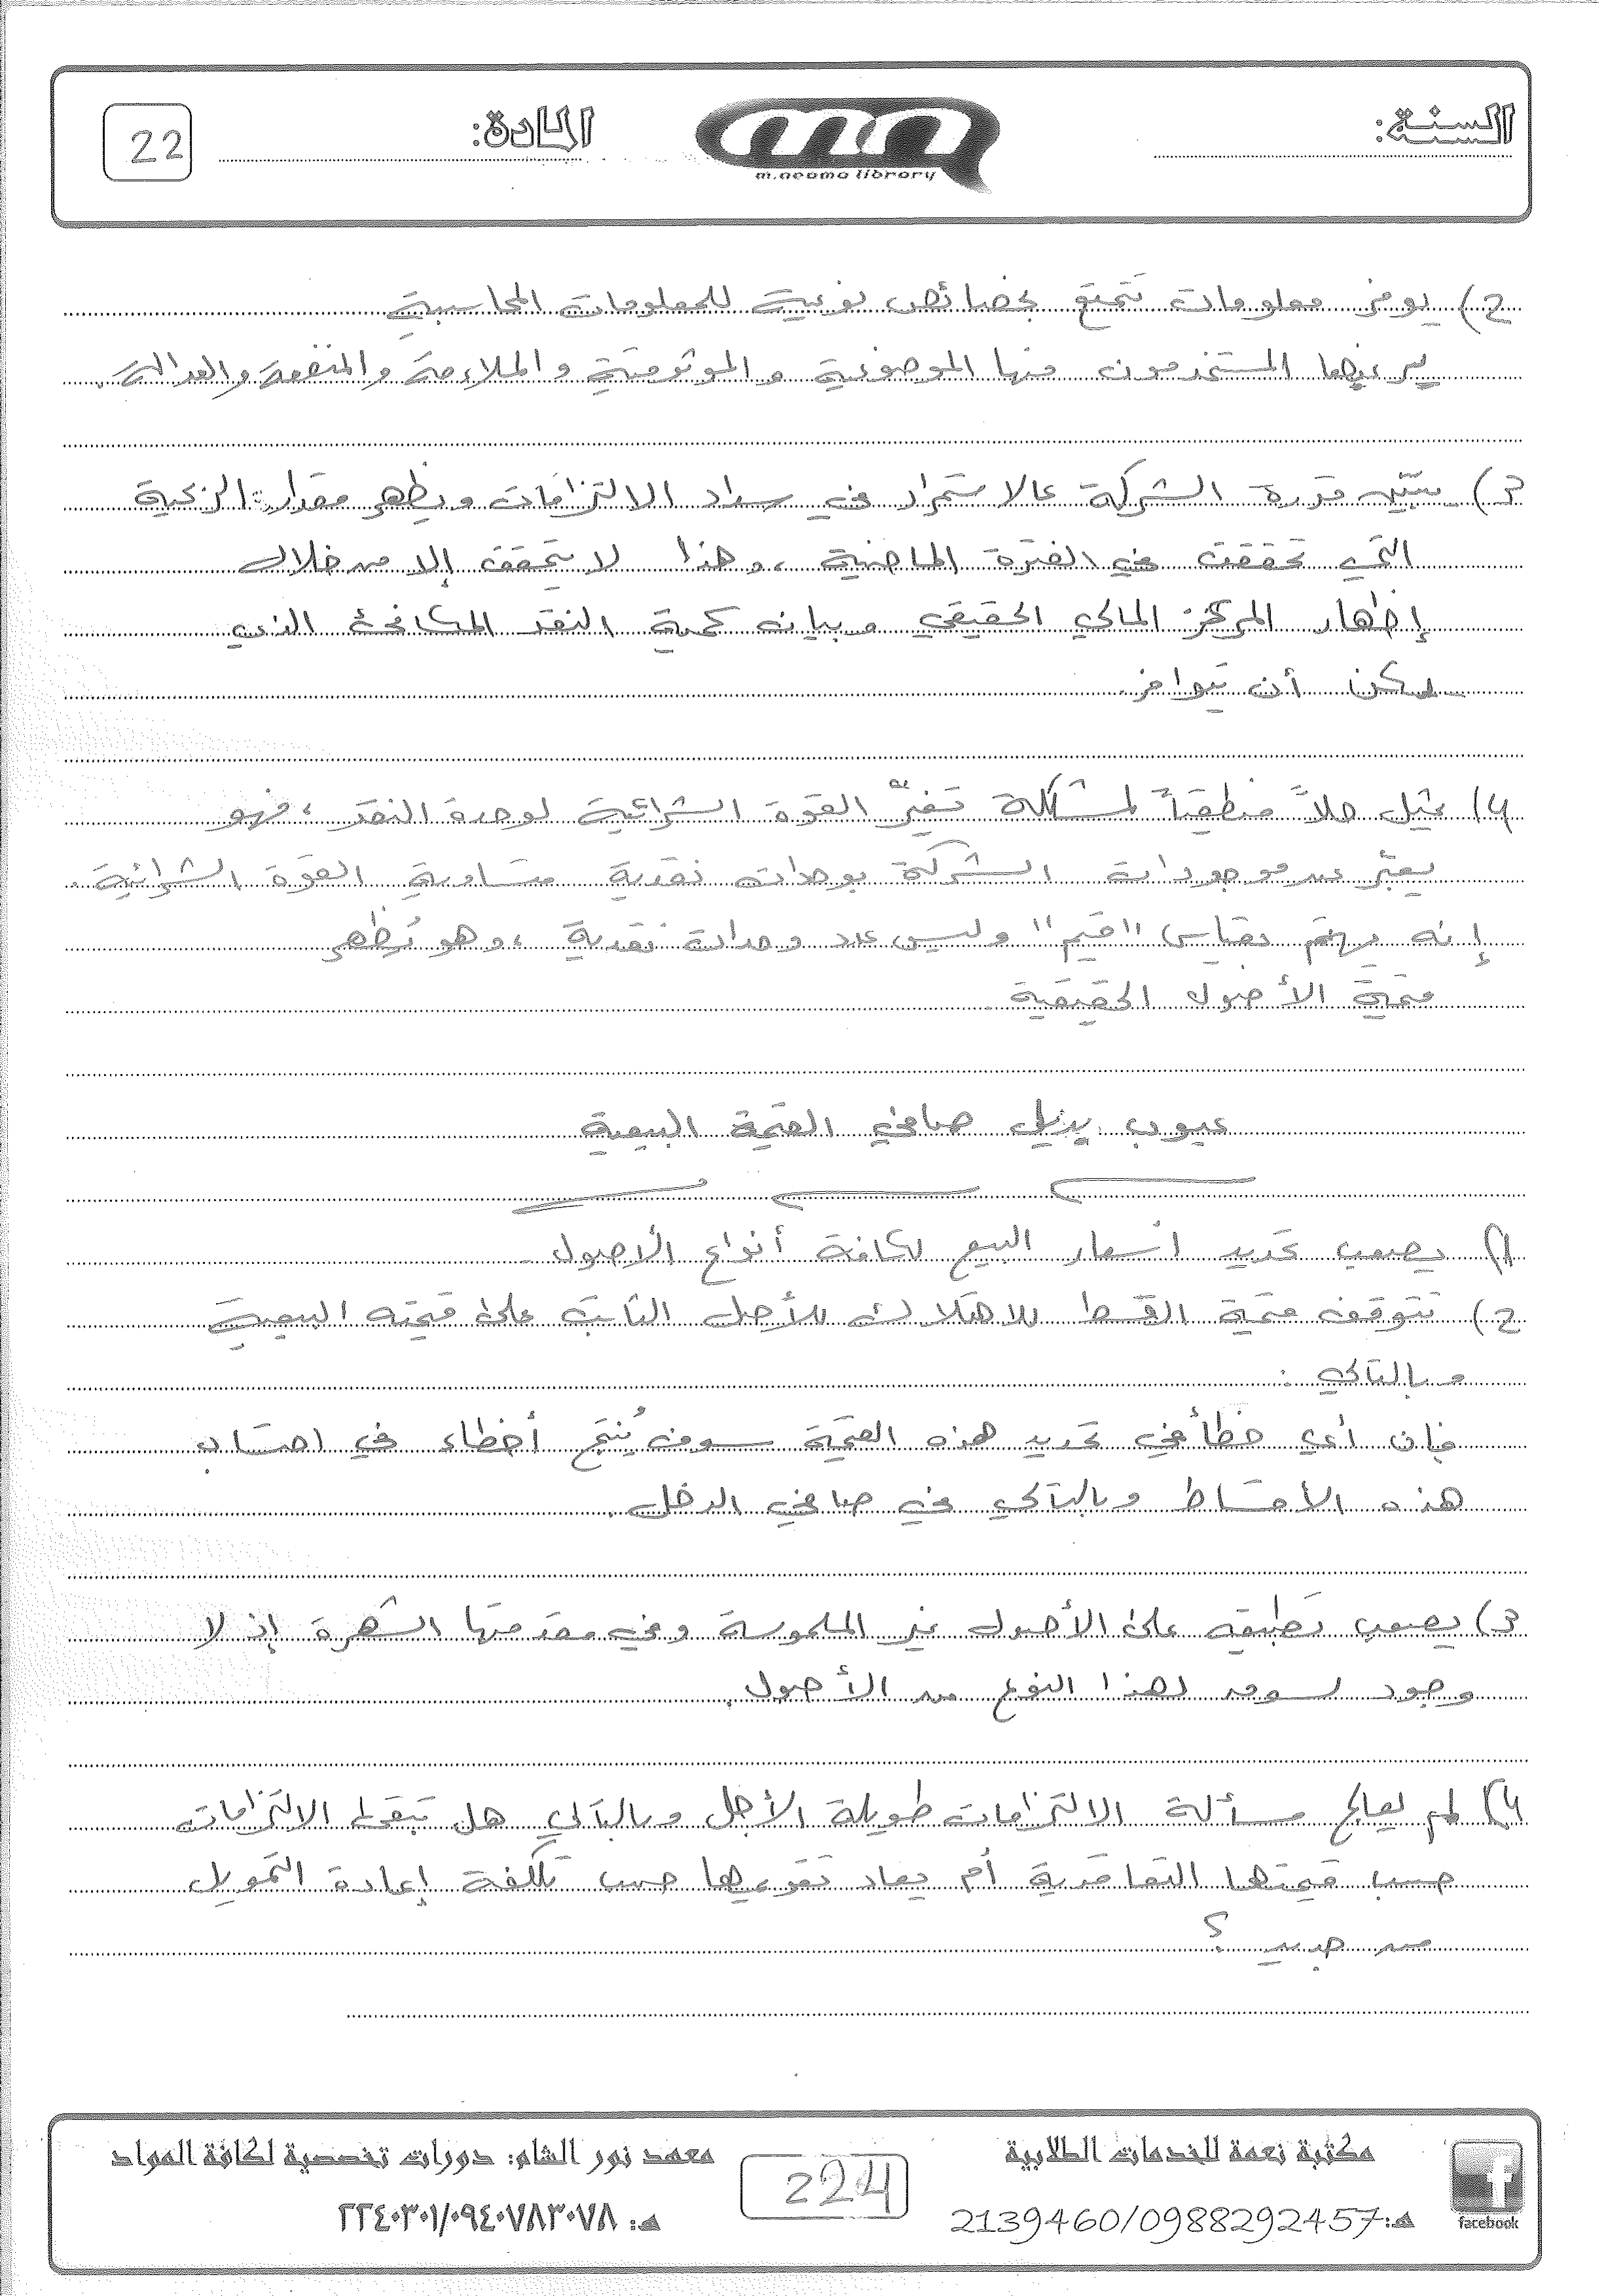 السنة:
m.neama library
المادة:
22
2) يوفر معلومات تتمتع بخصائص نوعية للمعلومات المحاسبية
يرغبها المستخدمون منها الموضوعية والموثوقية والملاءمة والمنفعة والعدالة.
3) يبيّن قدرة الشركة عالاستمرار في سداد الالتزامات ويظهر مقدار الربحية
التي تحققت في الفترة الماضية، وهذا لا يتحقق إلا من خلال
إظهار المركز المالي الحقيقي وبيان كمية النقد المكافئ الذي
يمكن أن يتوافر.
4) يمثل حلاً منطقياً لمشكلة تغيّر القوة الشرائية لوحدة النقد، فهو
يعبّر عن موجودات الشركة بوحدات نقدية متساوية القوة الشرائية.
إنه يهتم بقياس "قيم" وليس عدد وحدات نقدية، وهو يُظهر
قيمة الأصول الحقيقية.
عيوب بديل صافي القيمة البيعية
1) يصعب تحديد أسعار البيع لكافة أنواع الأصول.
2) تتوقف قيمة القسط للاهتلاك للأصل الثابت على قيمته البيعية
وبالتالي:
فإن أي خطأ في تحديد هذه القيمة سوف يُنتج أخطاء في احتساب
هذه الأقساط وبالتالي في صافي الدخل.
3) يصعب تطبيقه على الأصول غير الملموسة وفي مقدمتها الشهرة إذ لا
وجود لسوق لهذا النوع من الأصول.
4) لم يعالج مسألة الالتزامات طويلة الأجل وبالتالي هل تبقى الالتزامات
حسب قيمتها التعاقدية أم يعاد تقويمها حسب تكلفة إعادة التمويل
من جديد؟
مكتبة نعمة للخدمات الطلابية
هـ: 2139460/0988292457
facebook
224
معهد نور الشام: دورات تخصصية لكافة المواد
هـ: ٢٢٤٠٣٠١/٠٩٤٠٧٨٣٠٧٨